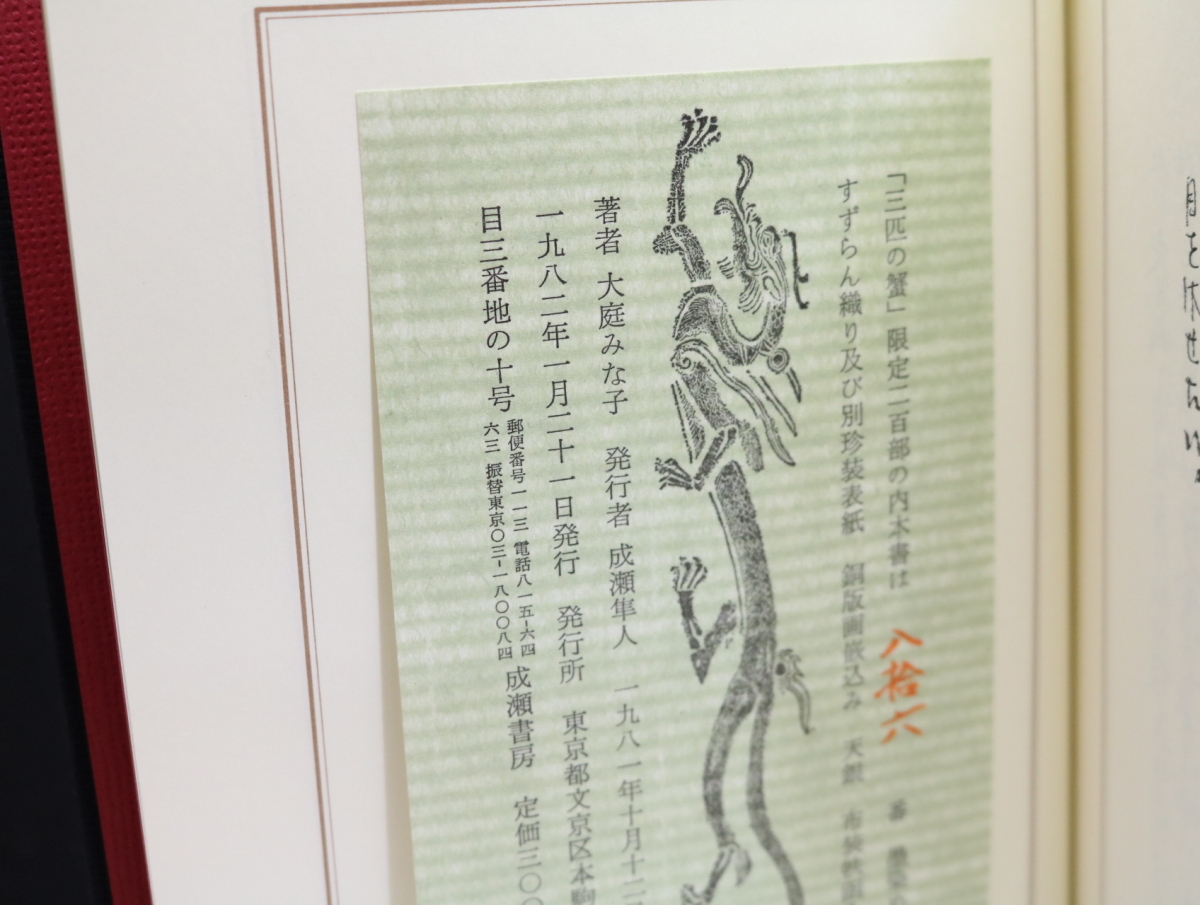 「三匹の蟹」限定二百部の内本書は 八拾六 番
すずらん織り及び別珍装表紙 銅版画嵌込み 天銀
著者 大庭みな子 発行者 成瀬隼人 一九八一年十月十二
一九八二年一月二十一日発行 発行所 東京都文京区本駒
目三番地の十号 郵便番号一一三 電話八一五-六四
六三 振替東京〇三-一八〇〇八四 成瀬書房 定価三〇〇